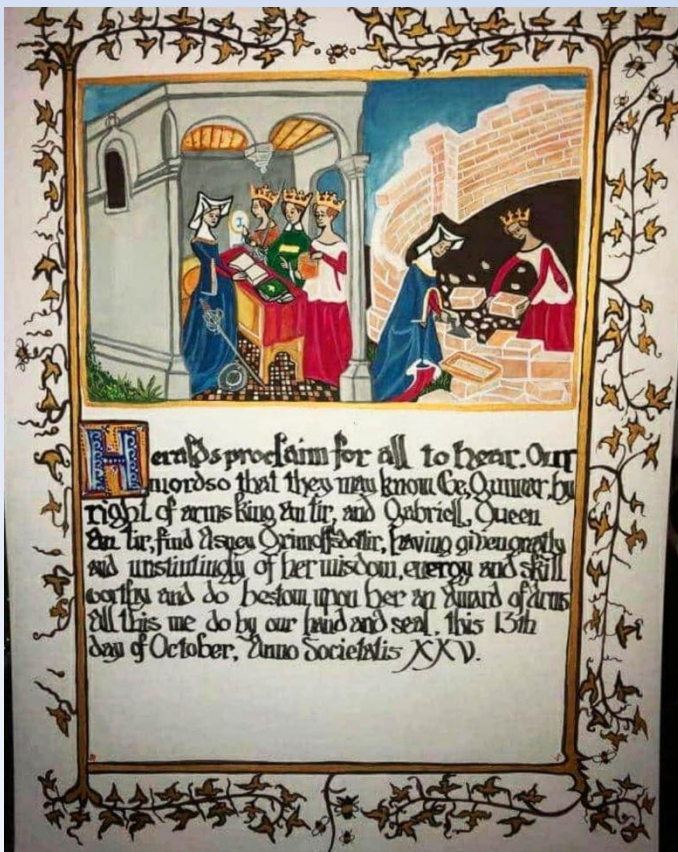 Heralds proclaim for all to hear. Our
words so that they may know We, Gunnar, by
right of arms king An tir, and Gabriell, Queen
An tir, find Asney Grimolfsdottir, having given greatly
and unstintingly of her wisdom, energy and skill
worthy and do bestow upon her an Award of Arms
All this we do by our hand and seal, this 13th
day of October, Anno Societatis XXV.